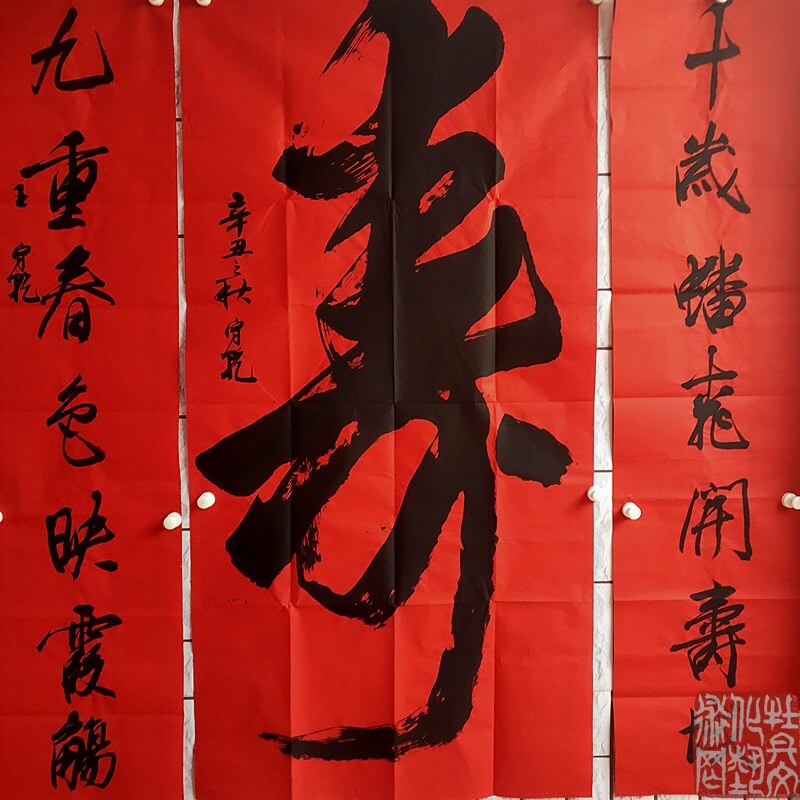 千歲蟠桃開壽
壽
辛丑之秋 守乾
九重春色映霞觴
王守乾